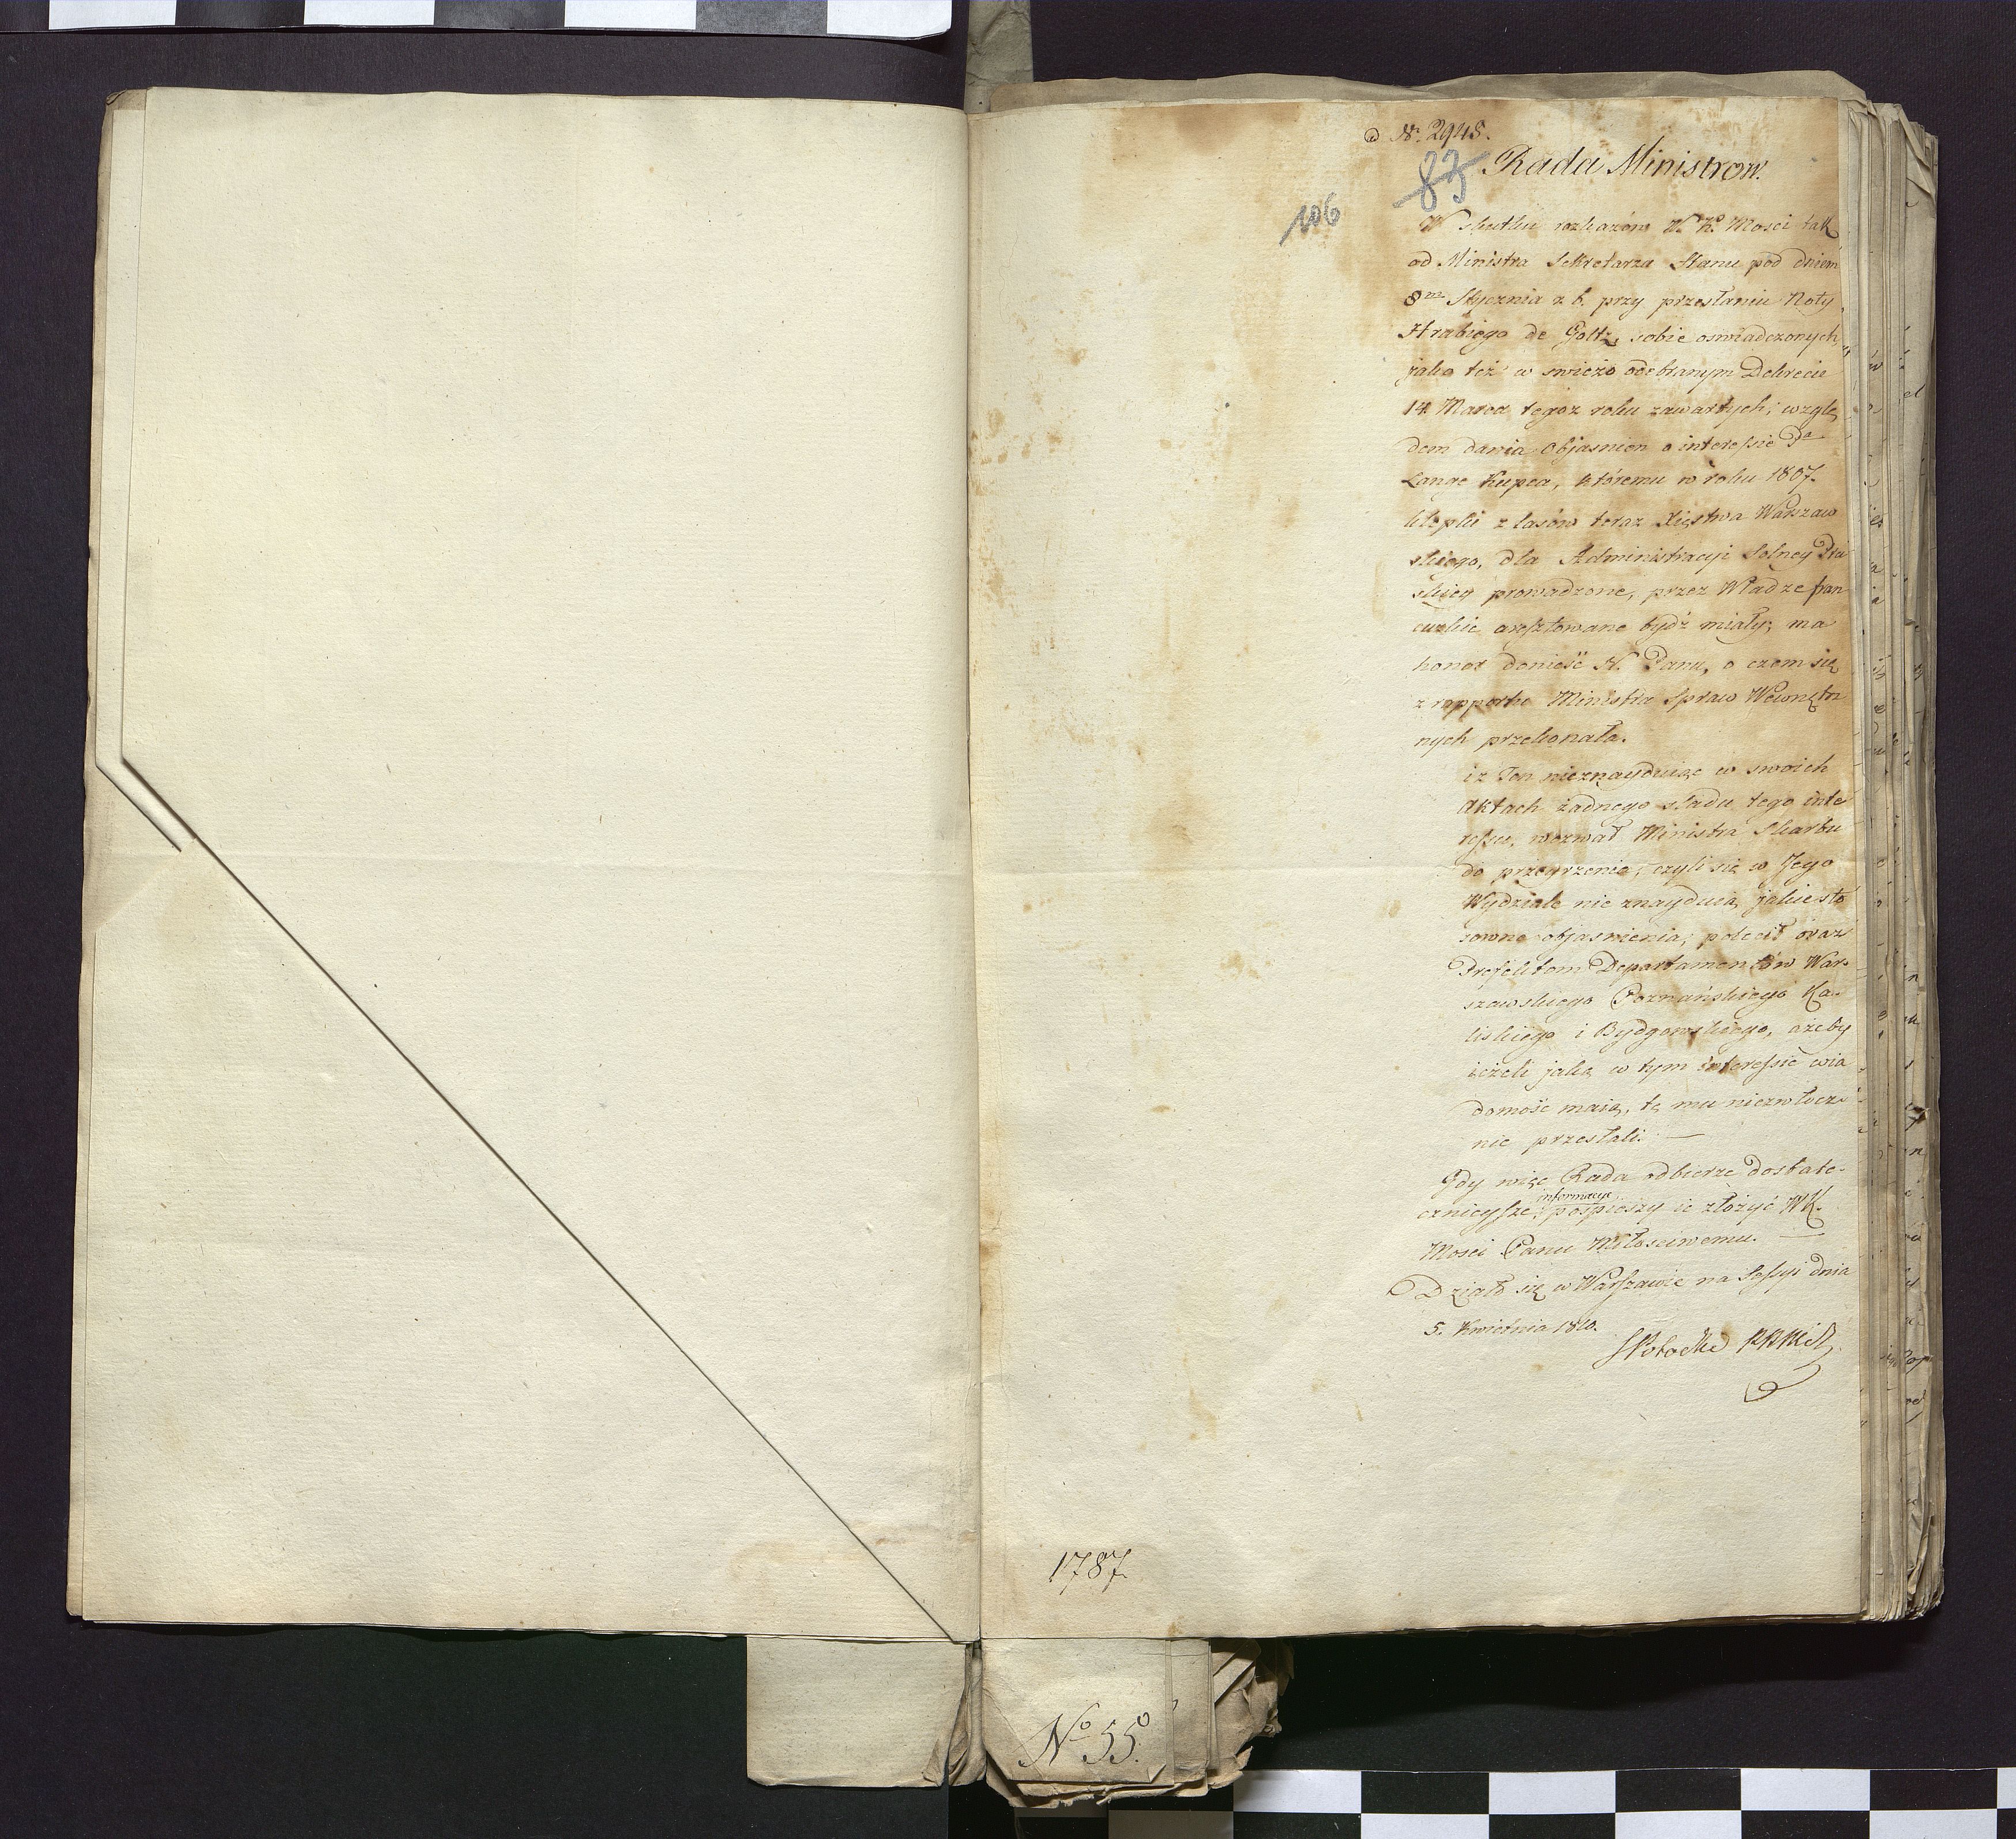 ad Nr. 2948.
83
Rada Ministrow.
106
W skutku rozkazów W. K. Mosci tak
od Ministra Sekretarza Stanu pod dniem
8m Stycznia r. b. przy przesłaniu Noty
Hrabiego de Goltz, sobie oswiadczonych
jako też w swieżo odebranym Dekrecie
14 Marca tegoż roku zawartych; wzglę
dem dania Objasnien o interessie Pa
Lange Kupca, któremu w roku 1807.
klepki z lasów teraz Xięstwa Warszaw
skiego, dla Administracyi Solney Pru
skiey prowadzone, przez Władze fran
cuzkie aresztowane bydź miały; ma
honor donieść N. Panu, o czem się
z rapportu Ministra Spraw Wewnętrz
nych przekonała.
iż Ten nieznayduiąc w swoich
Aktach żadnego sladu tego inte
ressu, wezwał Ministra Skarbu
do przeyrzenia, czyli się w Jego
Wydziale nie znayduią jakie sto
sowne objasnienia; polecił oraz
Prefektom Departamentów War-
szawskiego Poznańskiego Ka-
liskiego i Bydgowskiego, ażeby
ieżeli jaką w tym interessie wia
domość maią, tę mu niezwłocz-
nie przesłali. —
Gdy więc Rada odbierze dostate-
cznieysze informacye pospieszy ie złożyć W K.
Mosci Panu Miłosciwemu. —
Działo się w Warszawie na Sessyi dnia
5. Kwietnia 1810.
SPotocki
1787
No 55.